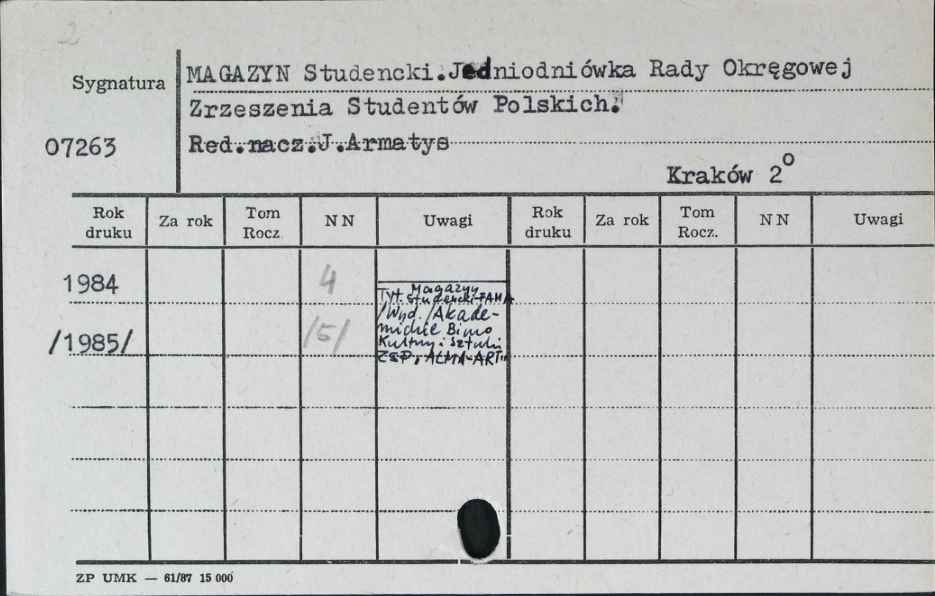 2
Sygnatura
MAGAZYN Studencki.Jedniodniówka Rady Okręgowej
Zrzeszenia Studentów Polskich.
07263
Red.nacz.J.Armatys
Kraków 2°
Rok druku Za rok Tom Rocz. NN Uwagi Rok druku Za rok Tom Rocz. NN Uwagi
1984 4
/1985/ /5/
Tyt. Magazyn
Studencki-FAMA
/Wyd./Akade-
mickie Biuro
Kultury i Sztuki
ZSP, ALMA-ART"
ZP UMK — 61/87 15 000